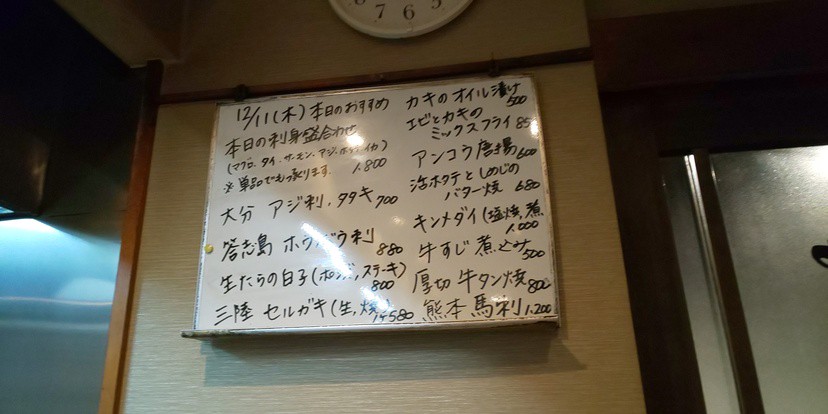 7 6 5
12/11(木)本日のおすすめ
本日の刺身盛合わせ
(マグロ、タイ、サーモン、アジ、ホウボウ、イカ)
※単品でも承ります. 1.800
大分 アジ刺、タタキ 700
答志島 ホウボウ刺 880
生たらの白子(ポンズ、ステーキ)
800
三陸 セルガキ(生、焼)
580
カキのオイル漬け
500
エビとカキの
ミックスフライ
アンコウ唐揚 600
活ホタテとしめじの
バター焼 680
キンメダイ(塩焼、煮
1.000
牛すじ煮込み
500
厚切牛タン焼 800
熊本馬刺 1.200